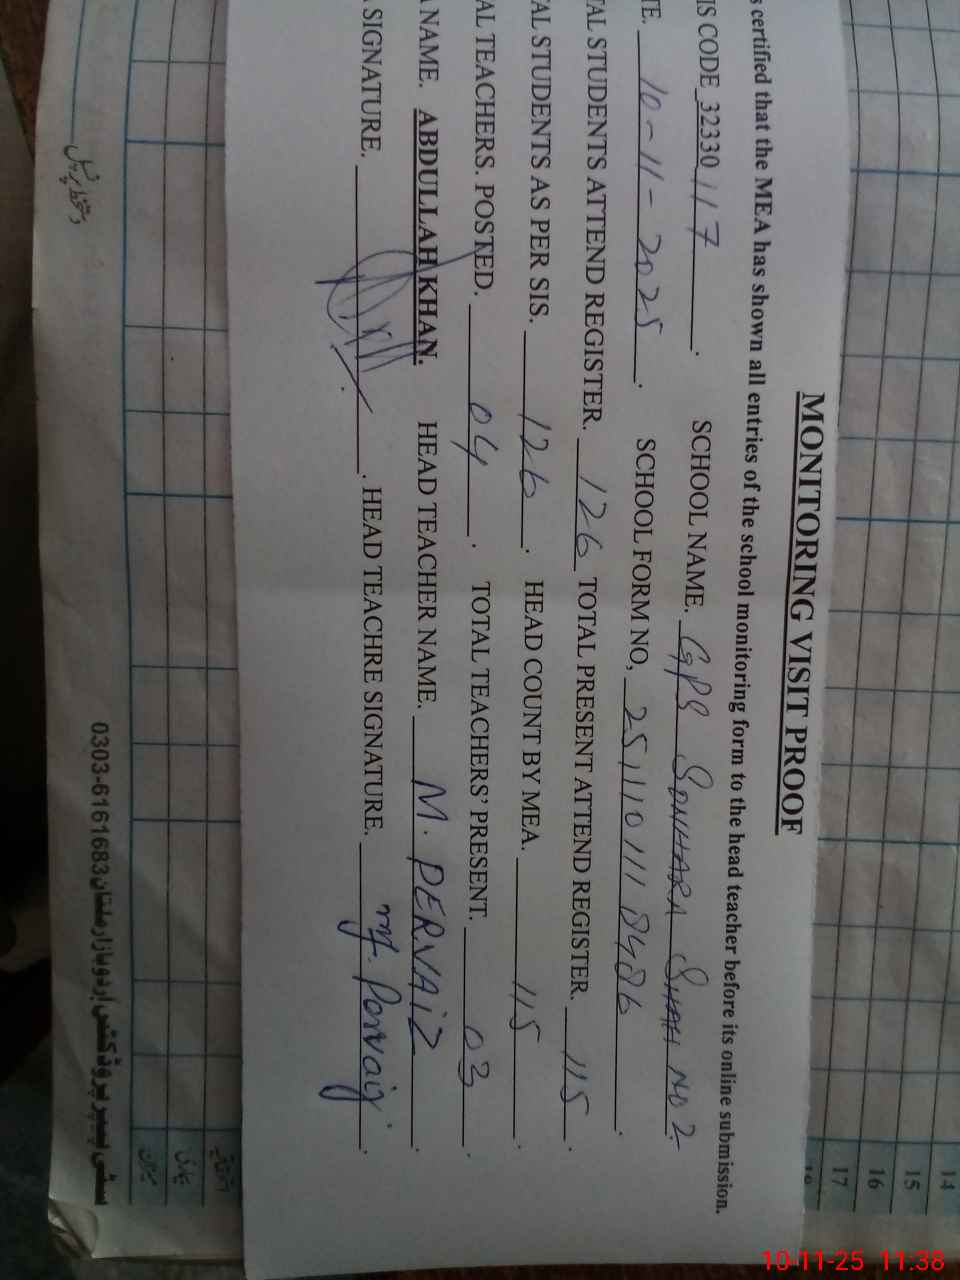 MONITORING VISIT PROOF
s certified that the MEA has shown all entries of the school monitoring form to the head teacher before its online submission.
IS CODE 32330117. SCHOOL NAME. GPS SONHARA SHAH NO 2.
TE. 10-11-2025. SCHOOL FORM NO, 251110111 8486.
TAL STUDENTS ATTEND REGISTER. 126 TOTAL PRESENT ATTEND REGISTER. 115.
TAL STUDENTS AS PER SIS. 126. HEAD COUNT BY MEA. 115.
TAL TEACHERS. POSTED. 04. TOTAL TEACHERS' PRESENT. 03.
A NAME. ABDULLAH KHAN. HEAD TEACHER NAME. M. PERVAIZ.
A SIGNATURE. . HEAD TEACHRE SIGNATURE. M. Parvaiz.
14
15
16
17
18
میزان
سٹی پیپر پروڈکٹس اردو بازار ملتان 0303-6161683
10-11-25 11:38